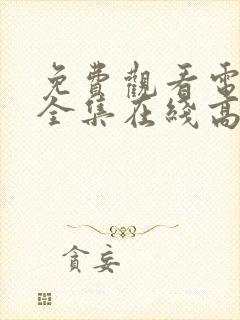 免費觀看電
全集在綫高
貪妄